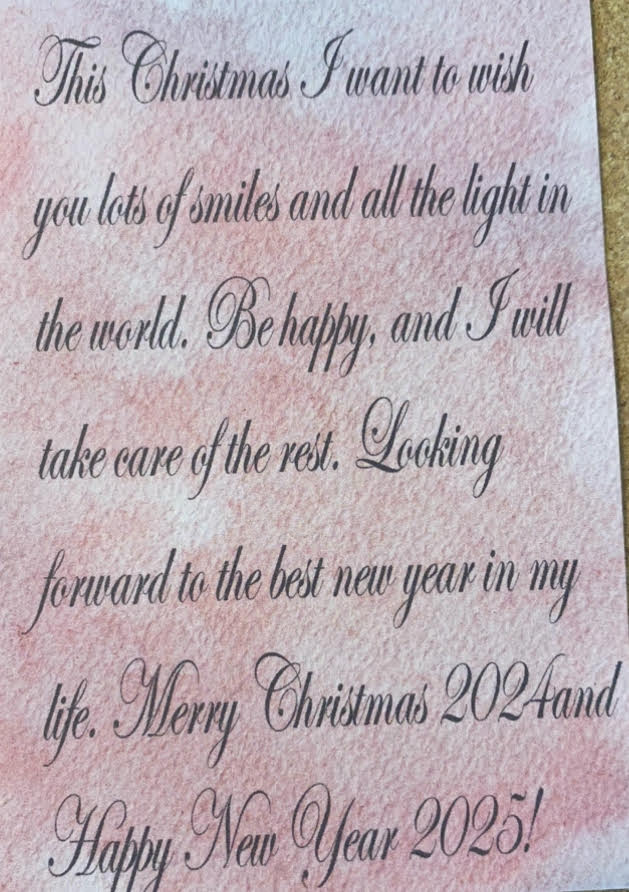 This Christmas I want to wish
you lots of smiles and all the light in
the world. Be happy, and I will
take care of the rest. Looking
forward to the best new year in my
life. Merry Christmas 2024and
Happy New Year 2025!